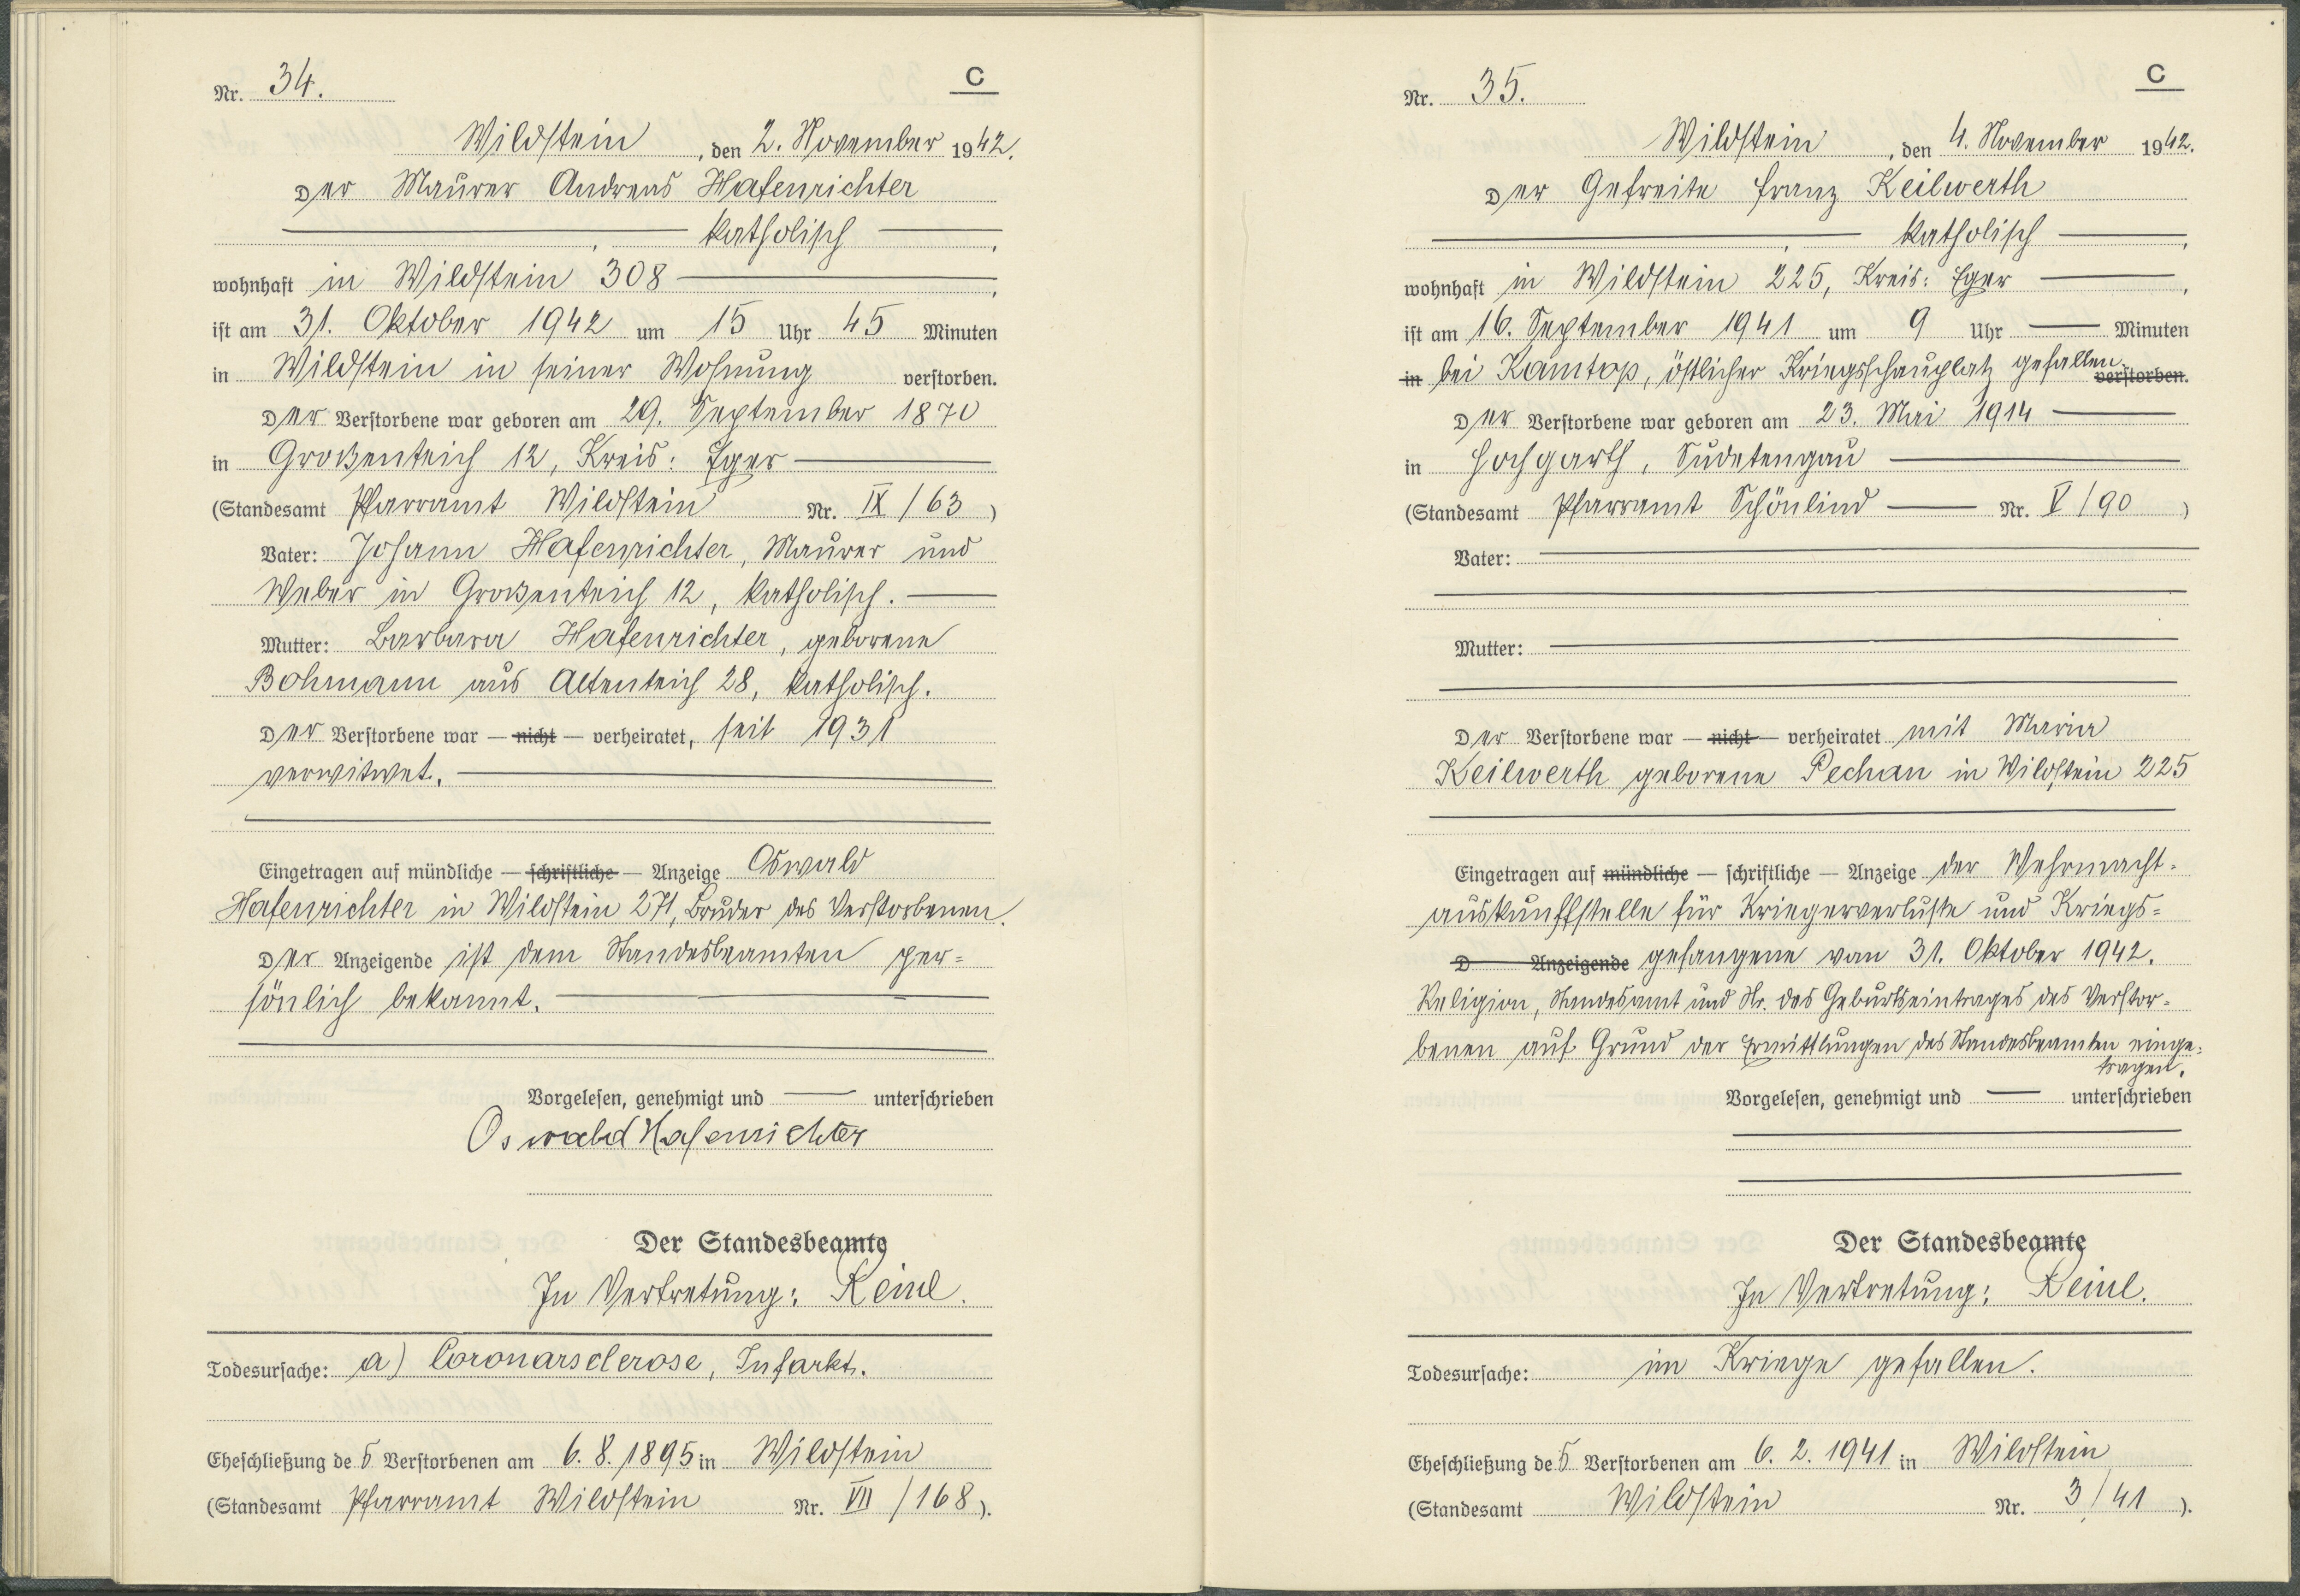 Nr. 34.
C
Wildstein, den 2. November 1942.
Der Maurer Andreas Hafenrichter
, katholisch,
wohnhaft in Wildstein 308,
ist am 31. Oktober 1942 um 15 Uhr 45 Minuten
in Wildstein in seiner Wohnung verstorben.
Der Verstorbene war geboren am 29. September 1870
in Großenteich 12, Kreis: Eger
(Standesamt Pfarramt Wildstein Nr. IX/63)
Vater: Johann Hafenrichter, Maurer und
Weber in Großenteich 12, katholisch.
Mutter: Barbara Hafenrichter, geborene
Bohmann aus Altenteich 28, katholisch.
Der Verstorbene war — nicht — verheiratet, seit 1931
verwitwet.
Eingetragen auf mündliche — schriftliche — Anzeige Oswald
Hafenrichter in Wildstein 271, Bruder des Verstorbenen.
Der Anzeigende ist dem Standesbeamten per=
sönlich bekannt.
Vorgelesen, genehmigt und — unterschrieben
Oswald Hafenrichter
Der Standesbeamte
In Vertretung: Reinl.
Todesursache: a) Coronarsclerose, Infarkt.
Eheschließung des Verstorbenen am 6.8.1895 in Wildstein
(Standesamt Pfarramt Wildstein Nr. VII/168).
Nr. 35.
C
Wildstein, den 4. November 1942.
Der Gefreite Franz Keilwerth
, katholisch,
wohnhaft in Wildstein 225, Kreis: Eger,
ist am 16. September 1941 um 9 Uhr — Minuten
in bei Kamtop, östlicher Kriegsschauplatz gefallen. verstorben.
Der Verstorbene war geboren am 23. Mai 1914
in Hochgarth, Sudetengau
(Standesamt Pfarramt Schönlind — Nr. V/90)
Vater:
Mutter:
Der Verstorbene war — nicht — verheiratet mit Maria
Keilwerth geborene Pechan in Wildstein 225
Eingetragen auf mündliche — schriftliche — Anzeige der Wehrmacht=
auskunftstelle für Kriegerverluste und Kriegs=
D Anzeigende gefangene vom 31. Oktober 1942.
Religion, Standesamt und Nr. des Geburtseintrages des Verstor=
benen auf Grund der Ermittlungen des Standesbeamten einge=
tragen.
Vorgelesen, genehmigt und — unterschrieben
Der Standesbeamte
In Vertretung: Reinl.
Todesursache: im Kriege gefallen.
Eheschließung des Verstorbenen am 6.2.1941 in Wildstein
(Standesamt Wildstein Nr. 3/41).